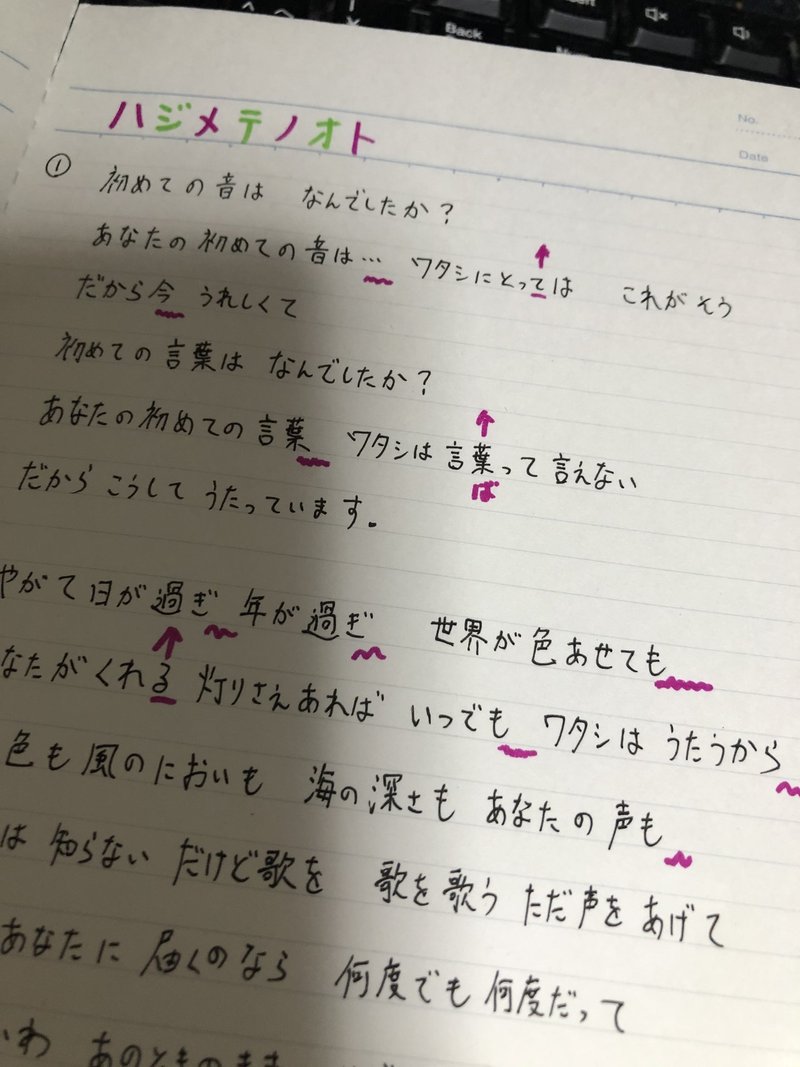 Back
No.
Date
ハジメテノオト
① 初めての音は なんでしたか?
あなたの初めての音は… ワタシにとっては これがそう
だから今 うれしくて
初めての言葉は なんでしたか?
あなたの初めての言葉 ワタシは言葉って言えない
ば
だから こうして うたっています。
やがて日が過ぎ 年が過ぎ 世界が色あせても
なたがくれる 灯りさえあれば いつでも ワタシは うたうから
色も風のにおいも 海の深さも あなたの声も
は 知らない だけど歌を 歌を歌う ただ声をあげて
あなたに 届くのなら 何度でも 何度だって
かわ あのときのまま